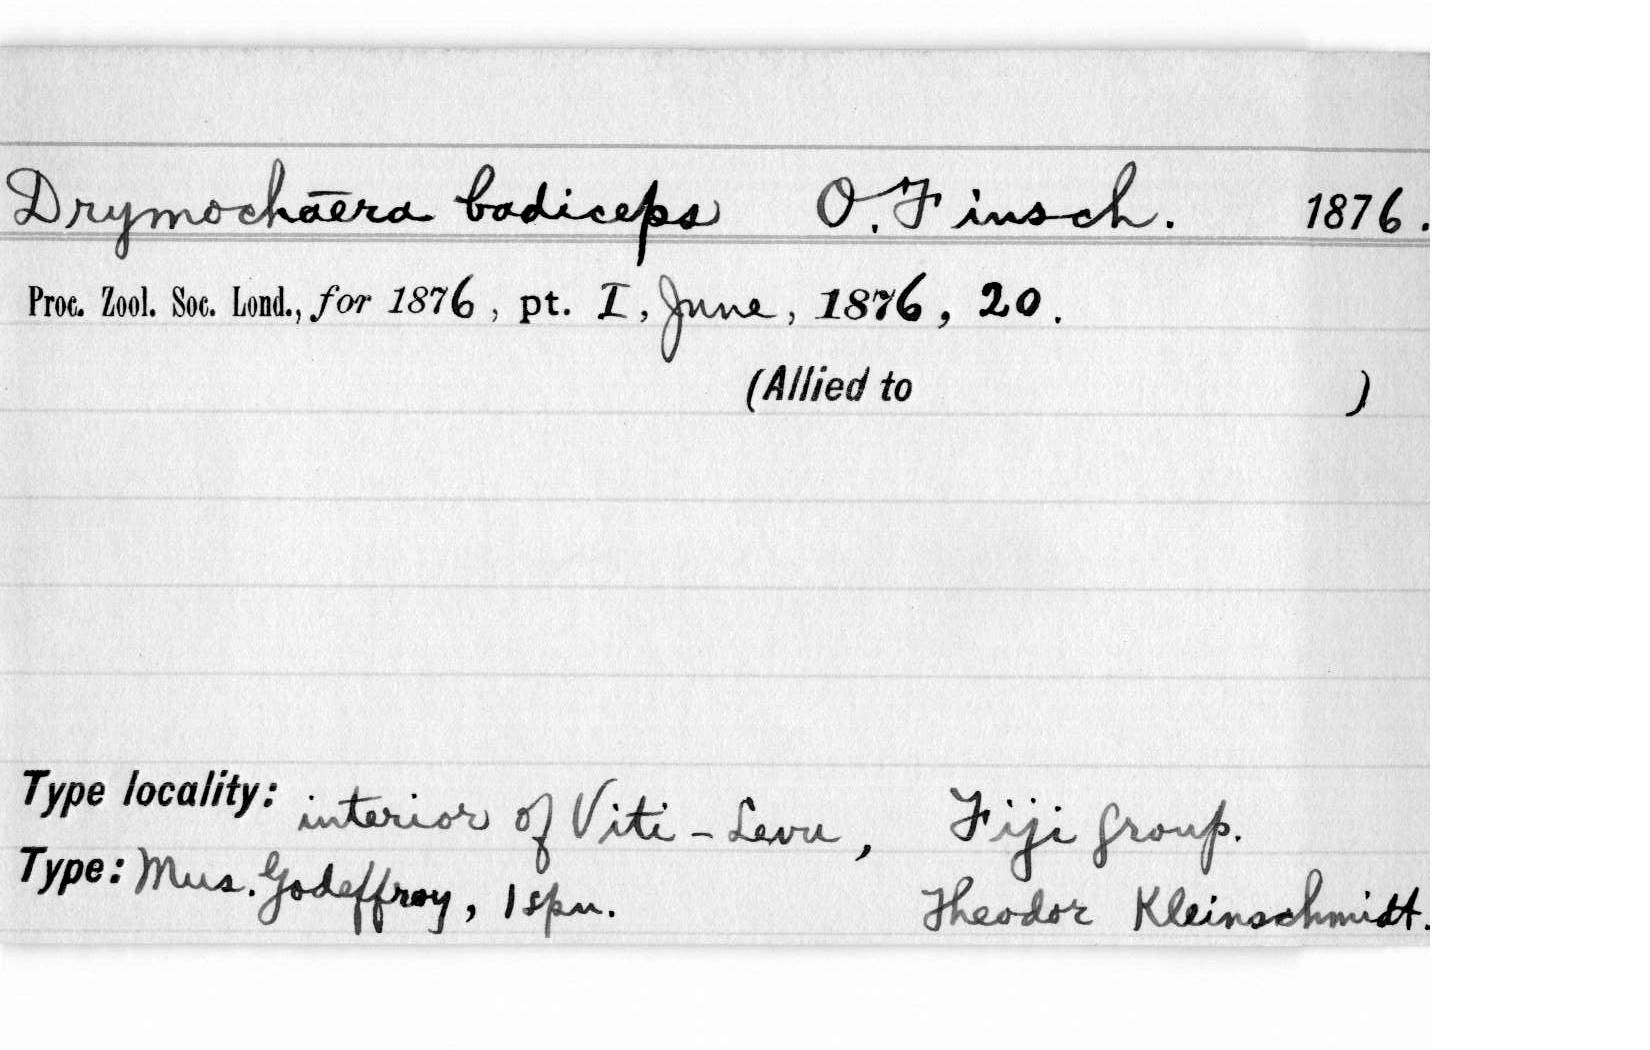 Drymochāera badiceps O. Finsch. 1876.
Proc. Zool. Soc. Lond., for 1876, pt. I, June, 1876, 20.
(Allied to )
Type locality: interior of Viti-Levu, Fiji group.
Type: Mus. Godeffroy, 1 spn. Theodor Kleinschmidt.